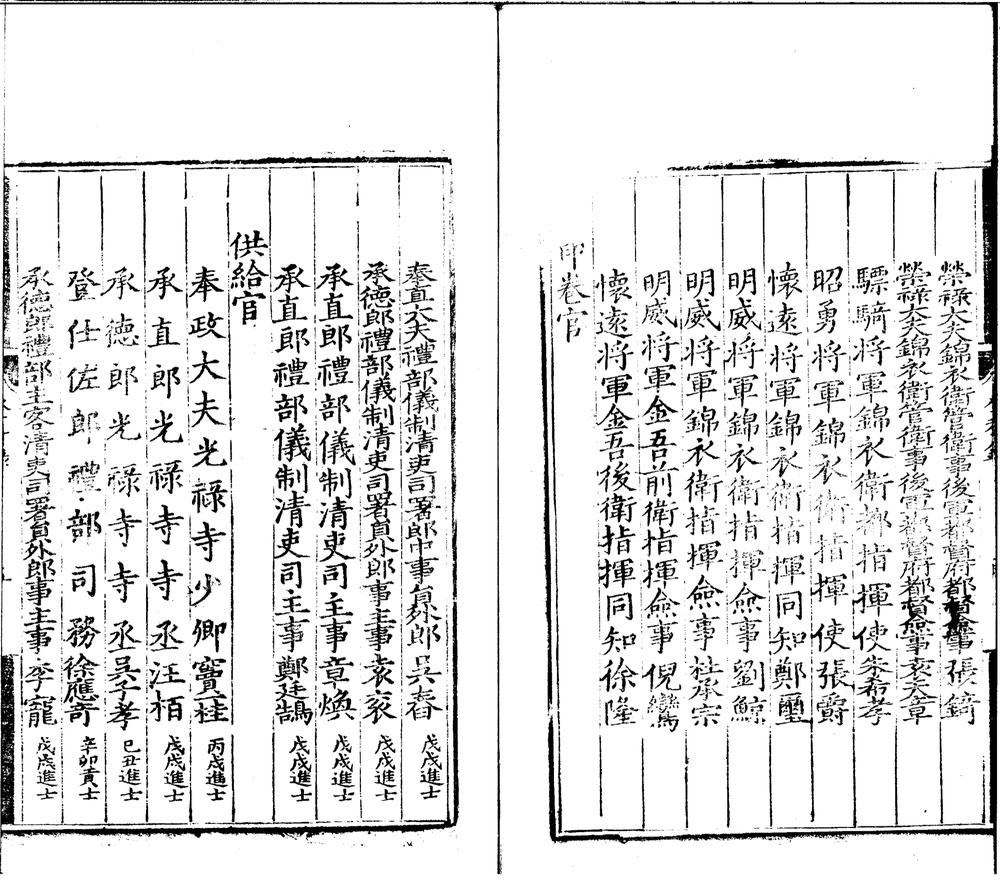 榮祿大夫錦衣衛管衛事後軍都督府都督僉事張錡
榮祿大夫錦衣衛管衛事後軍都督府都督僉事袁天章
驃騎將軍錦衣衛都指揮使朱希孝
昭勇將軍錦衣衛指揮使張爵
懷遠將軍錦衣衛指揮同知鄭璽
明威將軍錦衣衛指揮僉事劉鯨
明威將軍錦衣衛指揮僉事杜承宗
明威將軍金吾前衛指揮僉事倪鸞
懷遠將軍金吾後衛指揮同知徐隆
印卷官
奉直大夫禮部儀制清吏司署郎中事員外郎吳春 戊戌進士
承德郎禮部儀制清吏司署員外郎事主事袁袞 戊戌進士
承直郎禮部儀制清吏司主事章煥 戊戌進士
承直郎禮部儀制清吏司主事鄭廷鵠 戊戌進士
供給官
奉政大夫光祿寺少卿竇一桂 丙戌進士
承直郎光祿寺寺丞汪栢 戊戌進士
承德郎光祿寺寺丞吳子孝 己丑進士
登仕佐郎禮部司務徐應奇 辛卯貢士
承德郎禮部主客清吏司署員外郎事主事李寵 戊戌進士